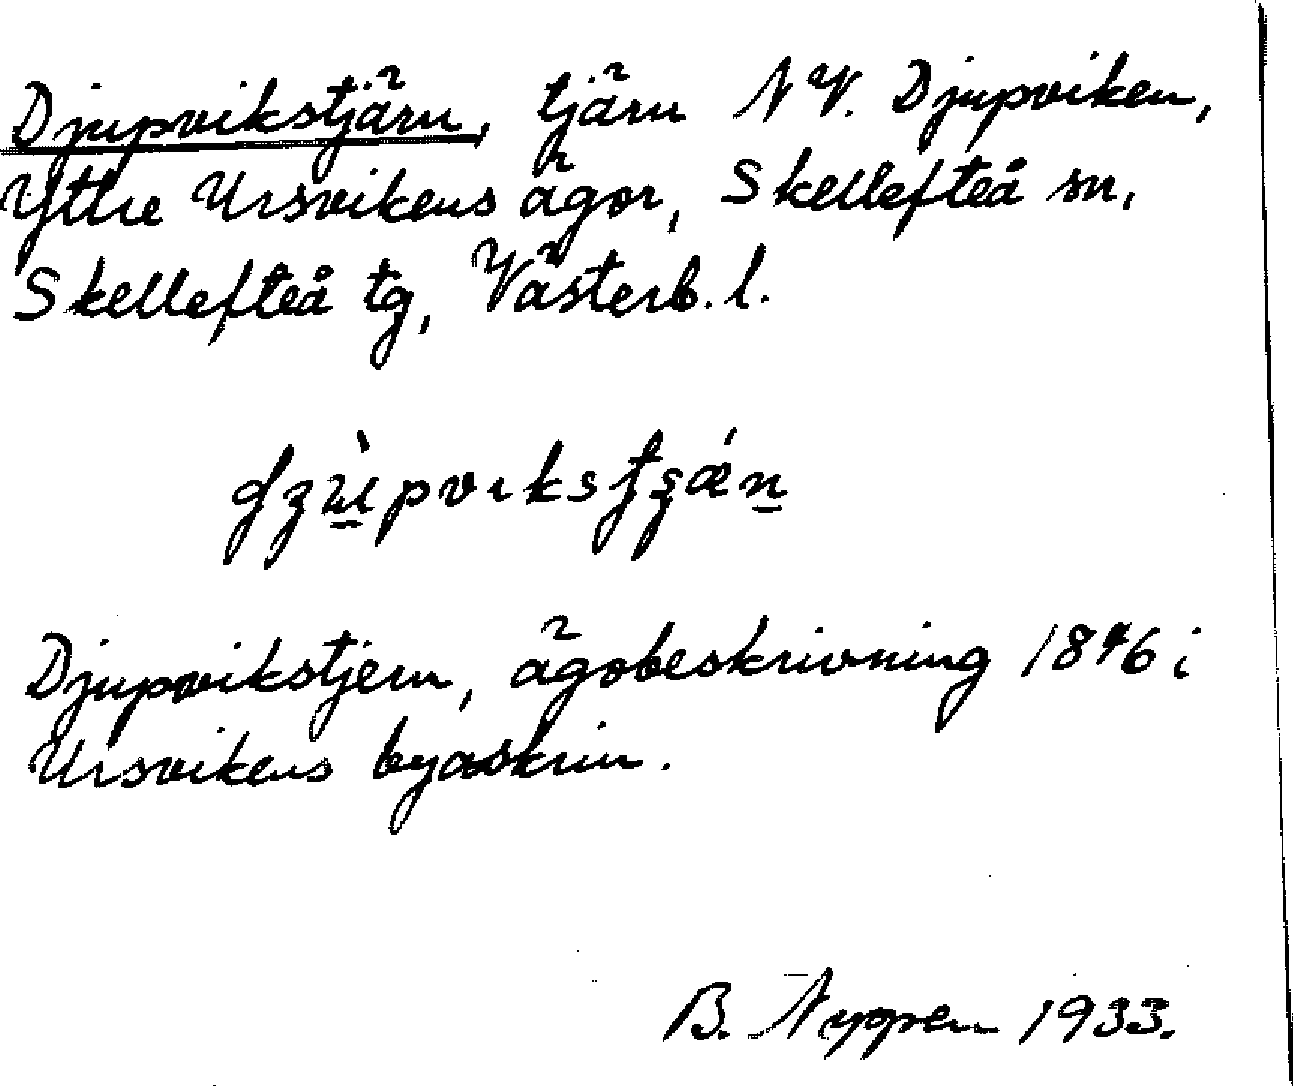 Djupvikstjärn, tjärn NV. Djupviken,
Yttre Ursvikens ägor, Skellefteå sn,
Skellefteå tg, Västerb. l.
Djupvikstjern, ägobeskrivning 1846 i
Ursvikens byaskrin.
B. Nyppen 1933.